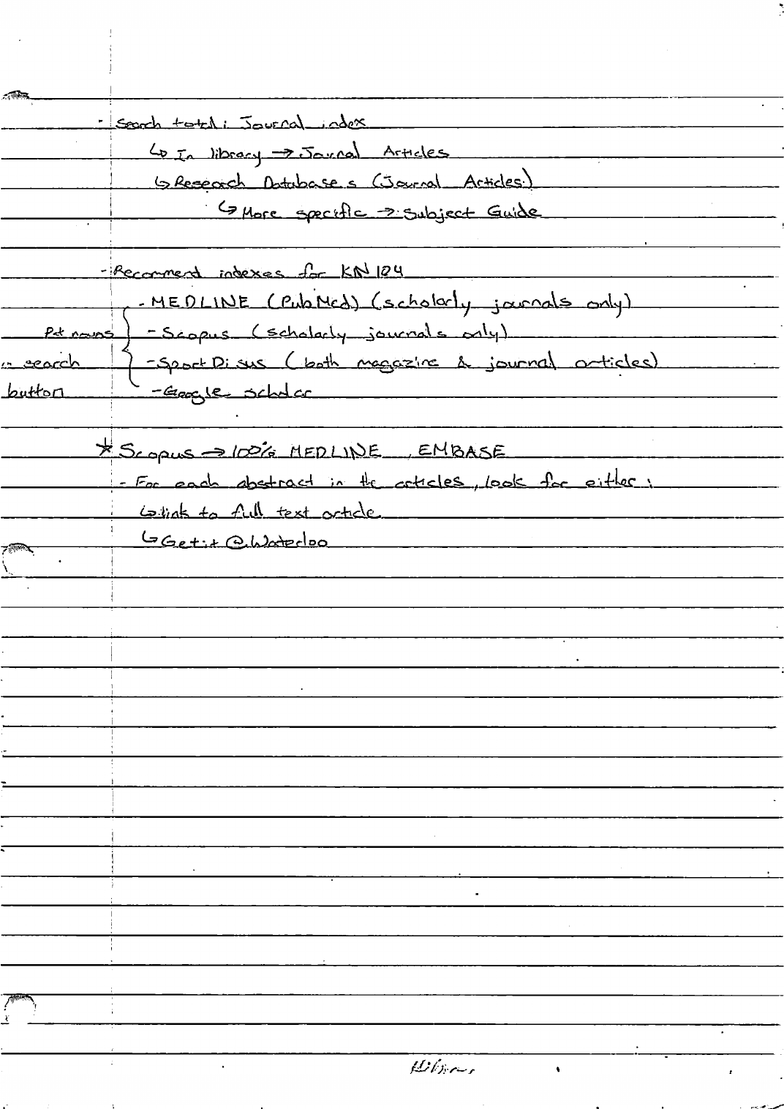 - Search total: Journal index
↳ In library → Journal Articles
↳ Research Databases (Journal Articles)
↳ More specific → Subject Guide
- Recommend indexes for KIN 104
- MEDLINE (PubMed) (scholarly journals only)
Put nouns - Scopus (scholarly journals only)
in search - SportDisus (both magazine & journal articles)
button - Google scholar
* Scopus → 100% MEDLINE, EMBASE
- For each abstract in the articles, look for either:
↳ link to full text article
↳ Get it @ Waterloo